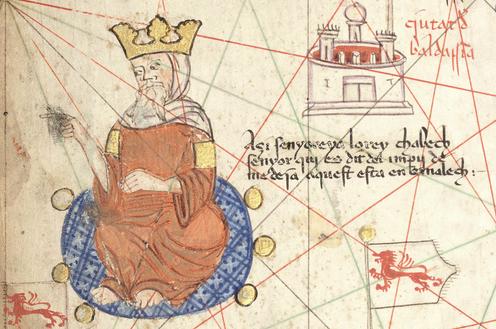 çiutat d
baldassia
Açi senyoreye lo rey chabech
senyor qui es dit del imperi de
medeia aquest esta en Emalech: